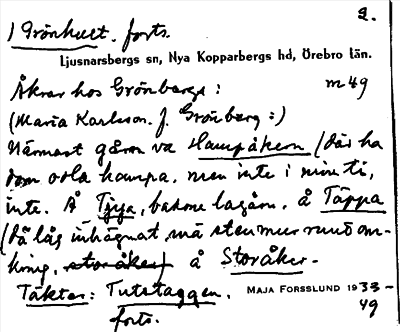 2.
1 Grönhult. forts.
Ljusnarsbergs sn, Nya Kopparbergs hd, Örebro län.
Åkrar hos Grönbergs: m 49
(Maria Karlsson. f. Grönberg:)
Närmast gåren va Hampåkern (där ha
dom odla hampa, men inte i min ti,
inte. Å Tjya, bakom lagårn, å Täppa
(då låg inhägnat må stenmur runtom-
kring, storåker) å Storåker.
Täkter: Tutstaggen. MAJA FORSSLUND 1933-
forts. 49